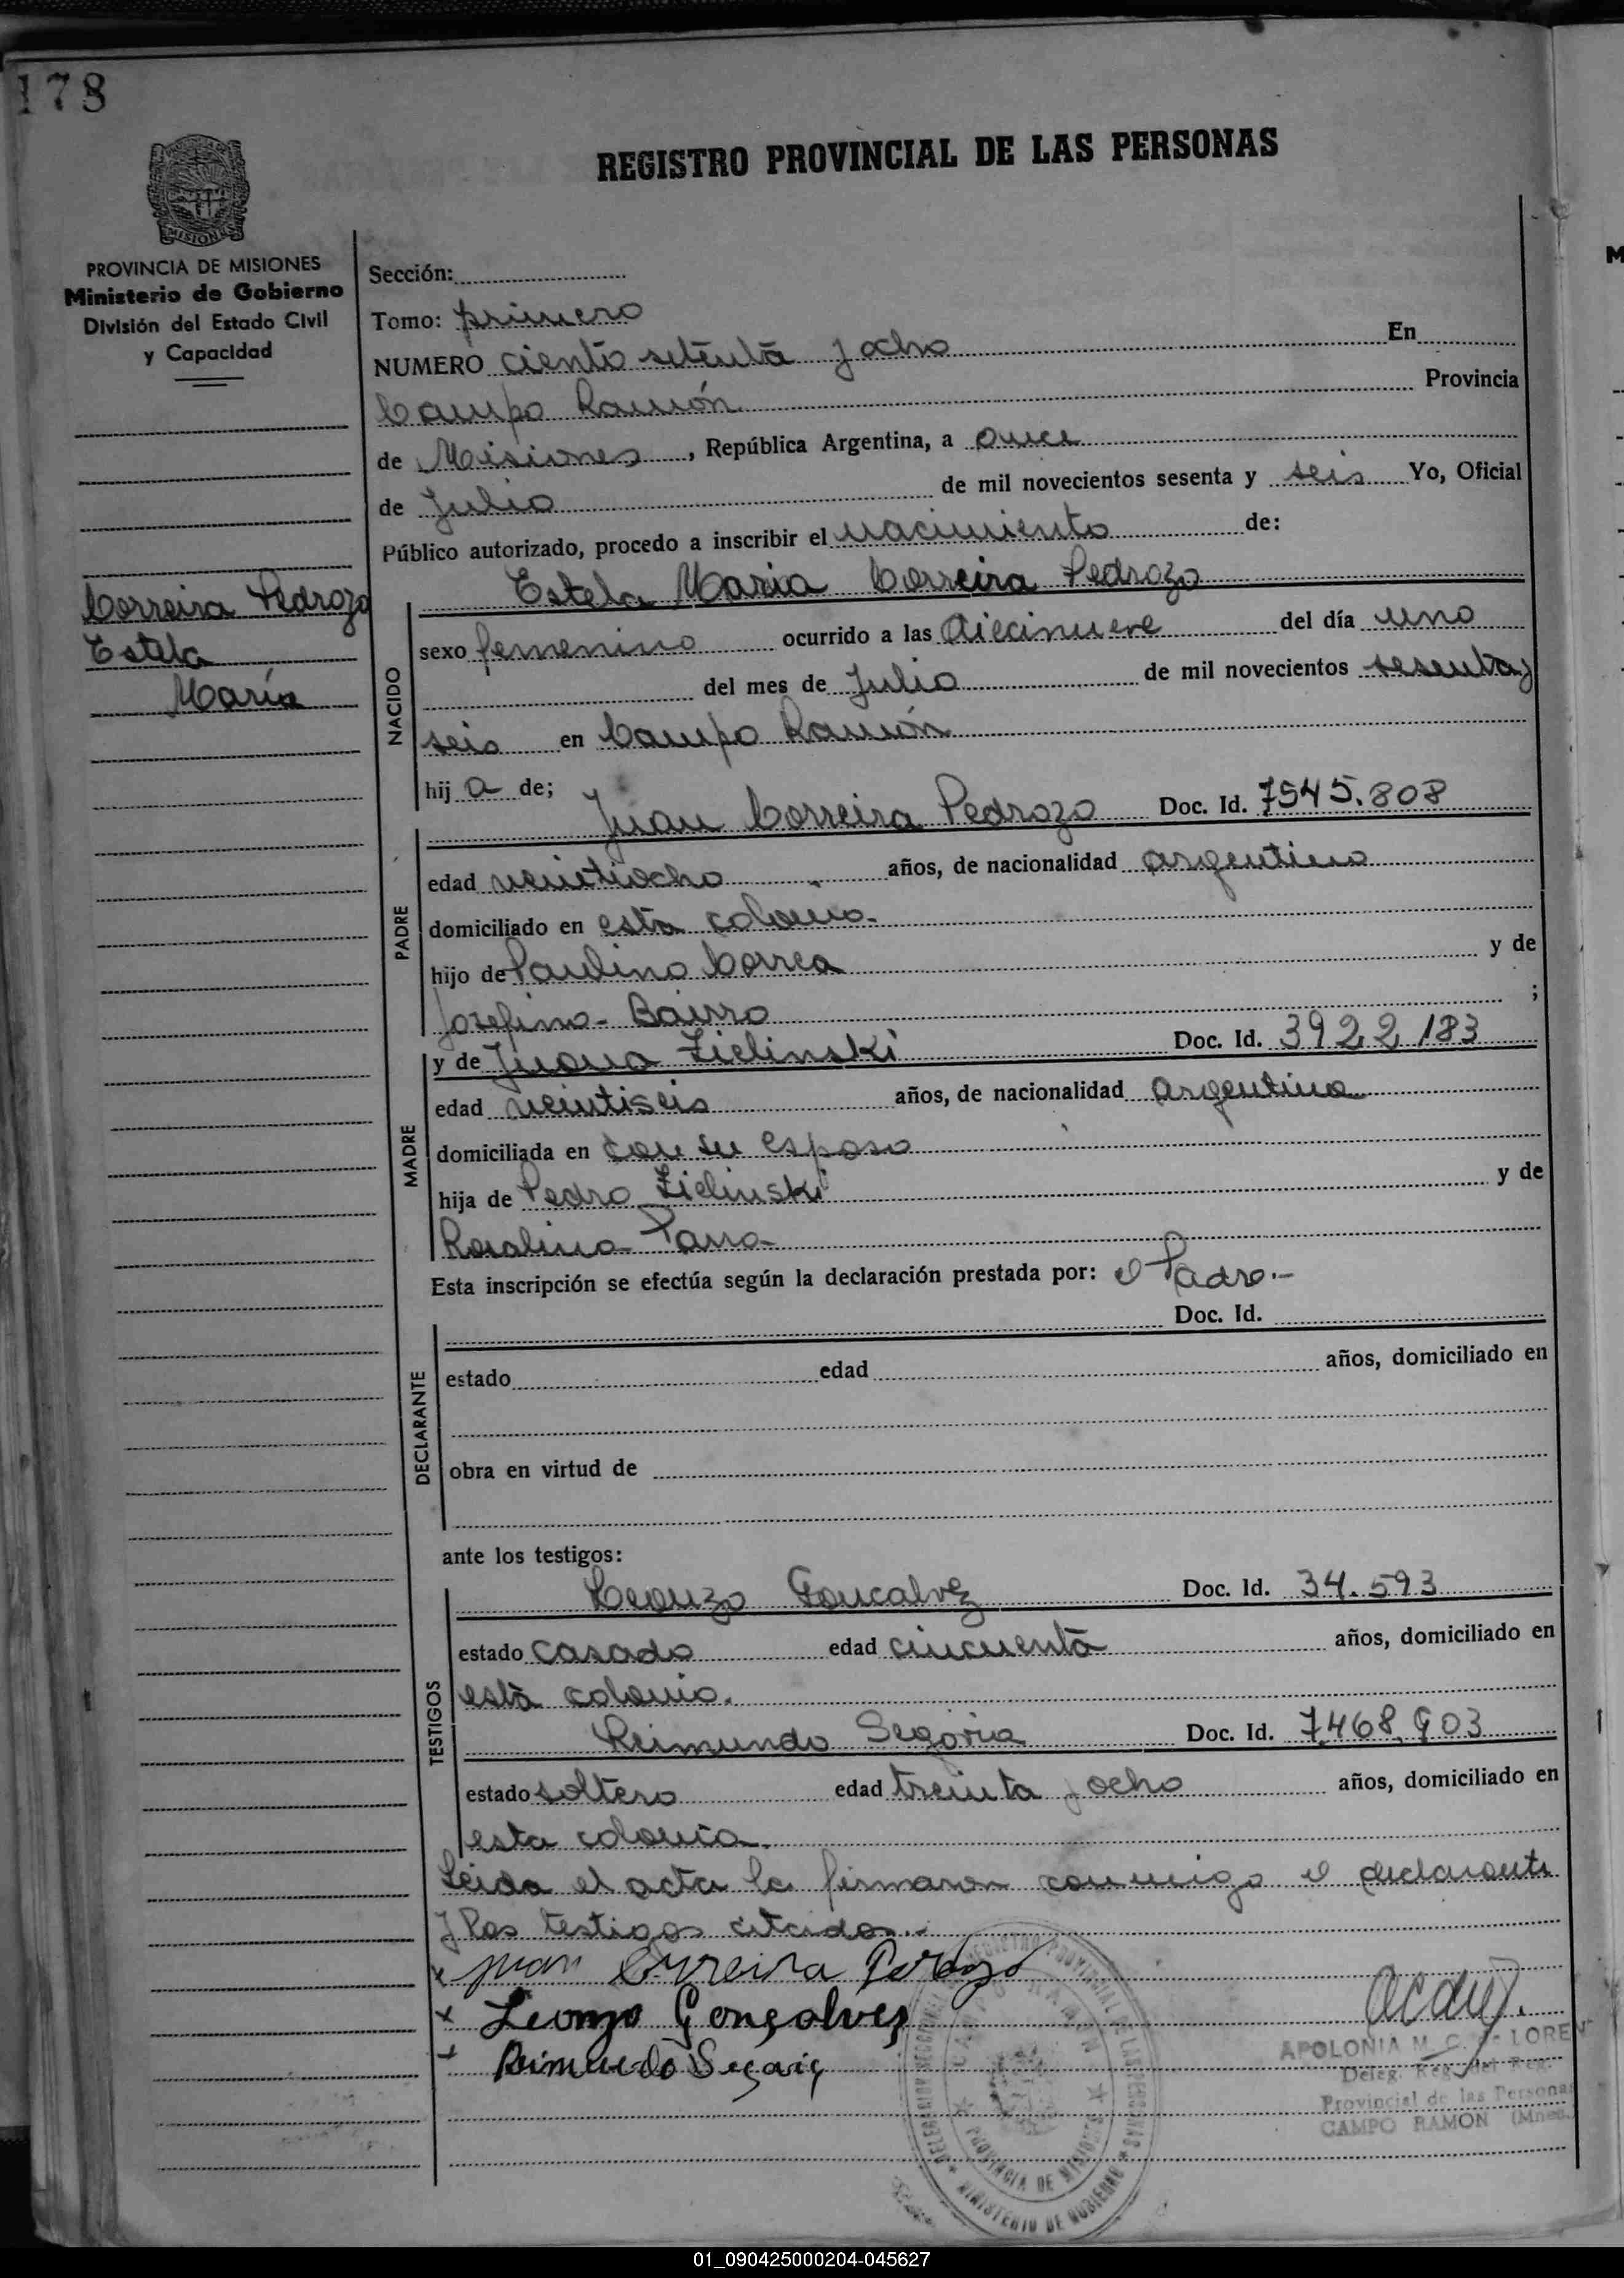 178
REGISTRO PROVINCIAL DE LAS PERSONAS
MISIONES
PROVINCIA DE MISIONES
Ministerio de Gobierno
División del Estado Civil
y Capacidad
Correira Pedrozo
Estela
María
Sección:
Tomo: primero
NUMERO ciento setenta y ocho En
Campo Ramón Provincia
de Misiones, República Argentina, a once
de Julio de mil novecientos sesenta y seis Yo, Oficial
Público autorizado, procedo a inscribir el nacimiento de:
Estela Maria Correira Pedrozo
NACIDO
sexo femenino ocurrido a las diecinueve del día uno
del mes de Julio de mil novecientos sesenta y
seis en Campo Ramón
hij a de;
Juan Correira Pedrozo Doc. Id. 7545.808
PADRE
edad veintiocho años, de nacionalidad argentino
domiciliado en esta colonia.
hijo de Paulino Correa y de
Josefina Bairro ;
MADRE
y de Juana Zielinski Doc. Id. 3922183
edad veintiseis años, de nacionalidad argentina
domiciliada en con su esposo
hija de Pedro Zielinski y de
Rosalina
Esta inscripción se efectúa según la declaración prestada por: el Padre.-
DECLARANTE
Doc. Id.
estado edad años, domiciliado en
obra en virtud de
ante los testigos:
TESTIGOS
Leonzo Goncalvez Doc. Id. 34.593
estado casado edad cincuenta años, domiciliado en
esta colonia.
Reimundo Segovia Doc. Id. 7.468.903
estado soltero edad treinta y ocho años, domiciliado en
esta colonia.
Leida el acta la firmaron conmigo el declarante
y los testigos citados.-
x Juan Correira Pedrozo
x Leonzo Gonçalves
x Reimundo Segovia
APOLONIA M. C. de LOREN
Deleg. Reg. del Reg.
Provincial de las Personas
CAMPO RAMON (Mnes.)
REGISTRO PROVINCIAL DE LAS PERSONAS
CAMPO RAMON
PROVINCIA DE MISIONES
MINISTERIO DE GOBIERNO
01_090425000204-045627